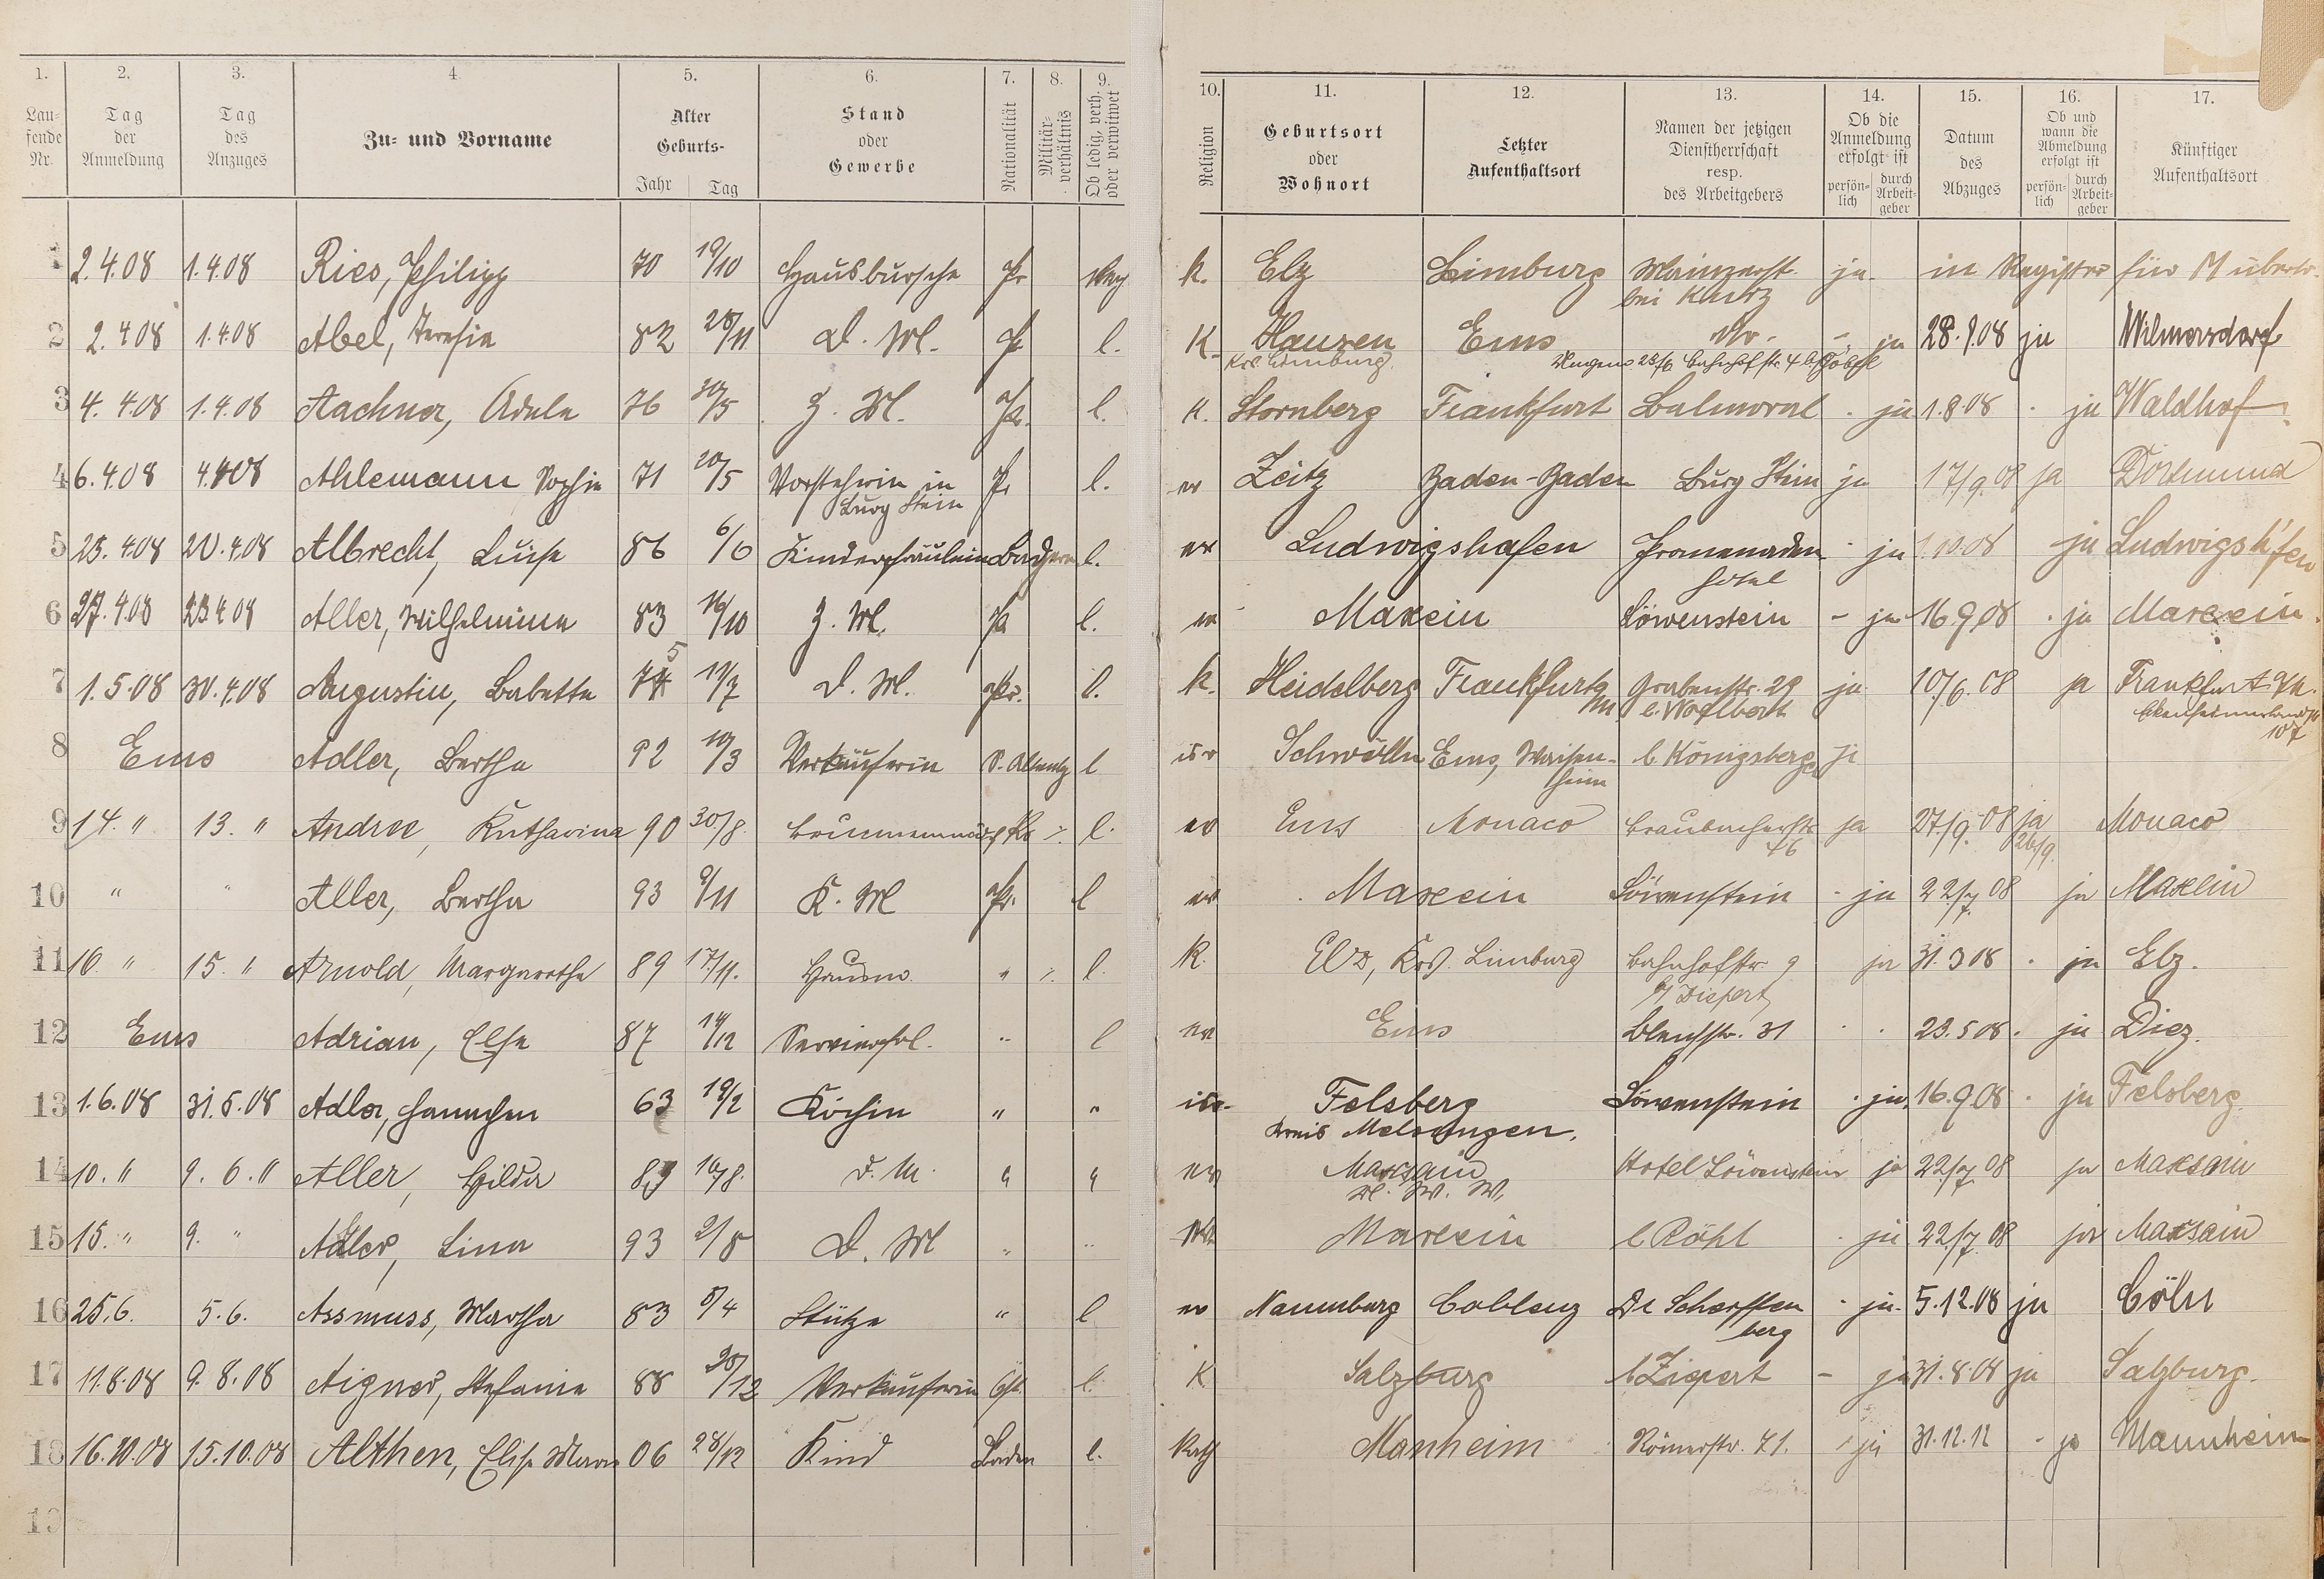 1. 2. 3. 4. 5. 6. 7. 8. 9. 10. 11. 12. 13. 14. 15. 16. 17.
Laufende Nr. Tag der Anmeldung Tag des Anzuges Zu= und Vorname Alter Geburts- Jahr Tag Stand oder Gewerbe Nationalität Militärverhältnis Ob ledig, verh. oder verwitwet Religion Geburtsort oder Wohnort Letzter Aufenthaltsort Namen der jetzigen Dienstherrschaft resp. des Arbeitgebers Ob die Anmeldung erfolgt ist persönlich durch Arbeitgeber Datum des Abzuges Ob und wann die Abmeldung erfolgt ist persönlich durch Arbeitgeber Künftiger Aufenthaltsort
1 2.4.08 1.4.08 Ries, Philipp 70 19/10 Hausbursche Pr k. Elz Limburg Mainzerst. ja in Register für M übertr.
bei Kurz
2 2.4.08 1.4.08 Abel, Teresia 82 28/11 D. M. Pr l. K. Hausen Ems - ja 28.9.08 ja Wilmersdorf
Krs. Limburg 23/6 Bahnhofstr. 4
3 4.4.08 1.4.08 Aachner, Adele 76 30/5 Z. M. Pr. l. K. Stornberg Frankfurt Balmoral . ja 1.8.08 . ja Waldhof
4 6.4.08 4.4.08 Ahlemann Sophie 71 20/5 Vorsteherin in Pr l. ev Zeitz Baden-Baden Burg Stein ja 17/9.08 ja Dortmund
Burg Stein
5 25.4.08 20.4.08 Albrecht, Luise 86 6/6 Kinderfräulein Bayern l. ev Ludwigshafen Promenaden - ja 1.10.08 ja Ludwigsh'fen
Hotel
6 27.4.08 23.4.08 Aller, Wilhelmine 83 16/10 Z. M. Pr l. ev Maxein Löwenstein - ja 16.9.08 . ja Maxein.
7 1.5.08 30.4.08 Augustin, Babette 75 19/7 D. M. Pr. l. k. Heidelberg Frankfurt a/M Grabenstr. 29 ja 10/6.08 ja Frankfurt a/M.
107
8 Ems Adler, Bertha 92 10/3 Verkäuferin S. Altenbg l isr Schmölln Ems, Waisen- b. Königsberger ja
heim
9 14. " 13. " Andree, Katharina 90 30/8. Brunnenmädch Pr ./. l. ev Ems Monaco Braubacherstr. ja 27/9.08 ja Monaco
46 26/9.
10 " " Aller, Bertha 93 9/11 K. M Pr. l ev . Maxein Löwenstein - ja 22/7.08 ja Maxein
11 16. " 15. " Arnold, Margarethe 89 17/11. Hausm. " ./. l. K. Elz, Krs. Limburg Bahnhofstr. 9 ja 31.3.08 . ja Elz.
12 Ems Adrian, Else 87 14/12 Servierfrl. " l ev Ems Bleichstr. 31 . . 23.5.08. ja Diez.
13 1.6.08 31.5.08 Adler, Hannchen 63 19/2 Köchin " " isr. Felsberg Löwenstein . ja. 16.9.08 . ja Felsberg
Kreis Melsungen.
14 10. " 9.6." Aller, Hilda 89 16/8. D. M. " " ev Maxsain Hotel Löwenstein ja 22/7.08 ja Maxsain
W. W.
15 15. " 9. " Adler, Lina 93 2/8 D. M " " ev. Maxein b Röhl . ja 22/7.08 ja Maxsain
16 25.6. 5.6. Assmuss, Martha 83 8/4 Stütze " l ev Naumburg Coblenz Dr Scharffen - ja. 5.12.08 ja Cöln
berg
17 11.8.08 9.8.08 Aigner, Stefanie 88 28/12 Verkäuferin Öst. l. K Salzburg b Ziepert - ja 31.8.08 ja Salzburg.
18 16.10.08 15.10.08 Althen, Elise 06 28/12 Kind Baden l. Kath Manheim Römerstr. 71. - ja 31.12.12 . ja Mannheim
19